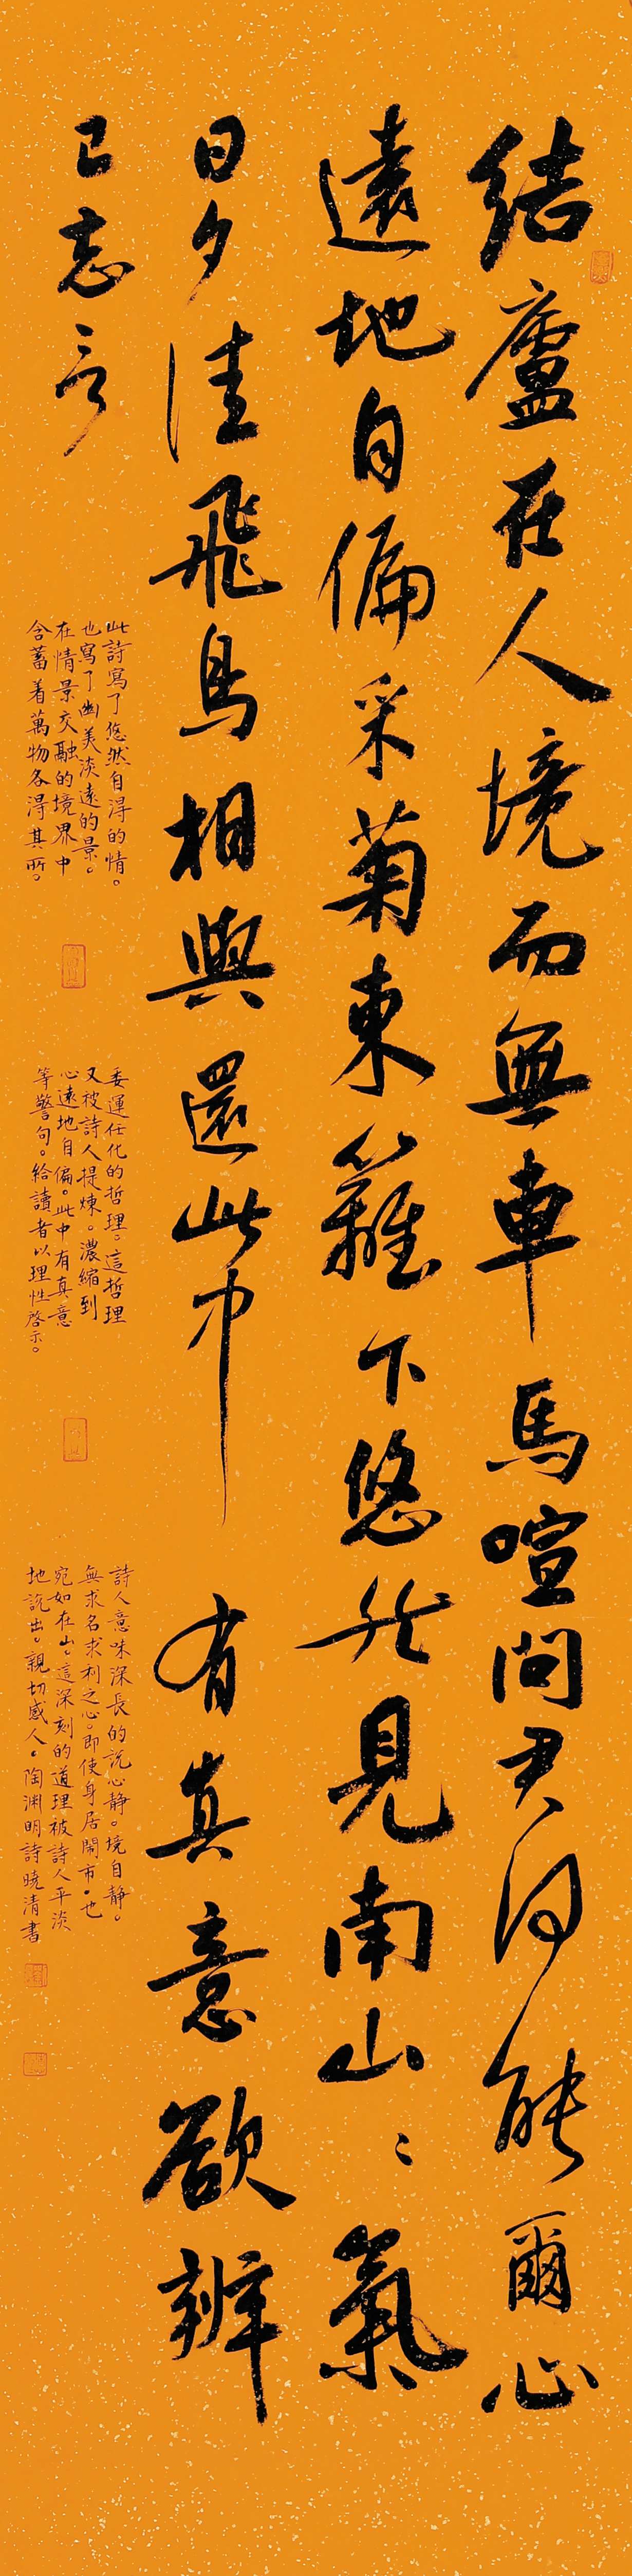 結廬在人境而無車馬喧問君何能爾心
遠地自偏采菊東籬下悠然見南山山氣
日夕佳飛鳥相與還此中有真意欲辨
已忘言
此詩寫了悠然自得的情。
也寫了幽美淡遠的景。
在情景交融的境界中
含蓄着萬物各得其所。
委運任化的哲理。這哲理
又被詩人提煉。濃縮到
心遠地自偏。此中有真意
等警句。給讀者以理性啓示。
詩人意味深長的說心靜。境自靜。
無求名求利之心。即使身居鬧市。也
宛如在山。這深刻的道理被詩人平淡
地說出。親切感人。陶淵明詩曉清書